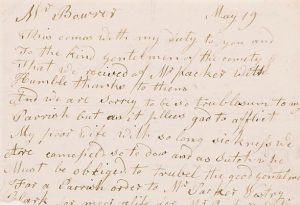 Mr Bowrer May 19
This comes with my duty to you and
to the kind gentelmen of the comety
That we received of Mr packer with
Humble thanks to them
And we are sorrey to be so trublesum to my
Parrish but as it plees god to afflict
My poor Wife with so long sickness we
Are so to doe and as such we
Must be obriged to trubel the good gentelmen
For a Parrish order to Mr Packer Vestry
Clark or